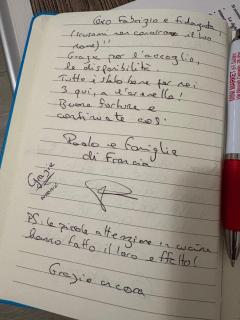 Caro Fabrizio e fidanzata
(scusami non conoscere il tuo
nome)!!
Grazie per l'accoglio,
le disponibilità
Tutto è stato bene per noi
3 qui, a l'
Buone fortune e
continuate così
Paolo e Famiglia
di Francia
Grazie
PS: le piccole attenzione in cucina
hanno fatto il loro effetto!
Grazie ancora